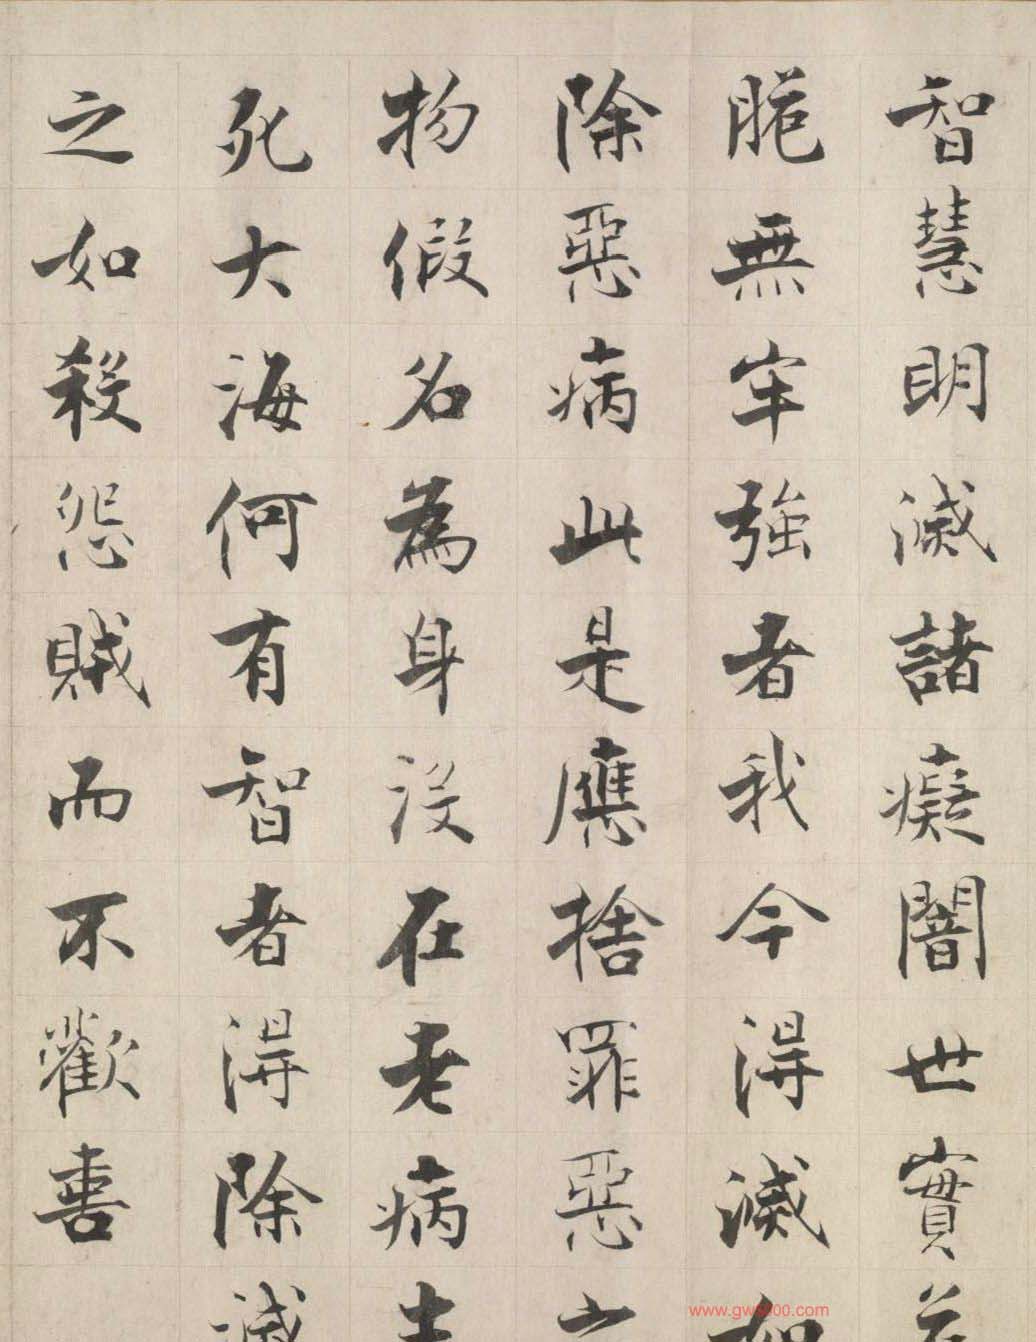 智慧明滅諸癡闇世實
脆無牢強者我今得滅如
除惡病此是應捨罪惡之
物假名為身沒在老病生
死大海何有智者得除滅
之如殺怨賊而不歡喜
www.gws100.com